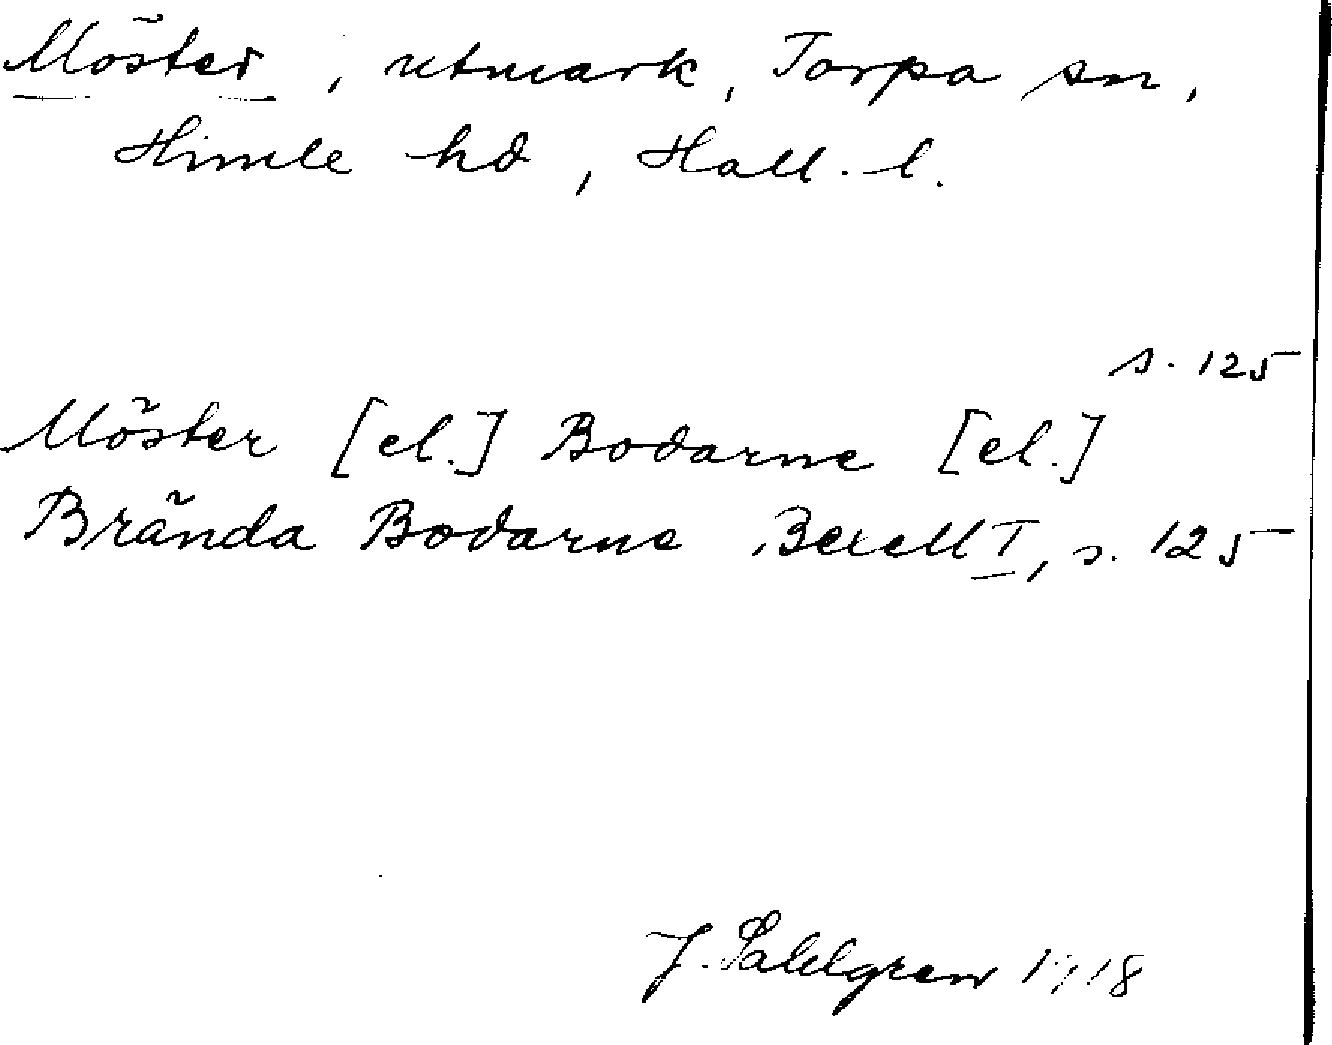 Möster, utmark, Torpa sn,
Himle hd, Hall. l.
s. 125
Möster [el.] Bodarne [el.]
Brända Bodarne Bexell I, s. 125
J. Sahlgren 1918